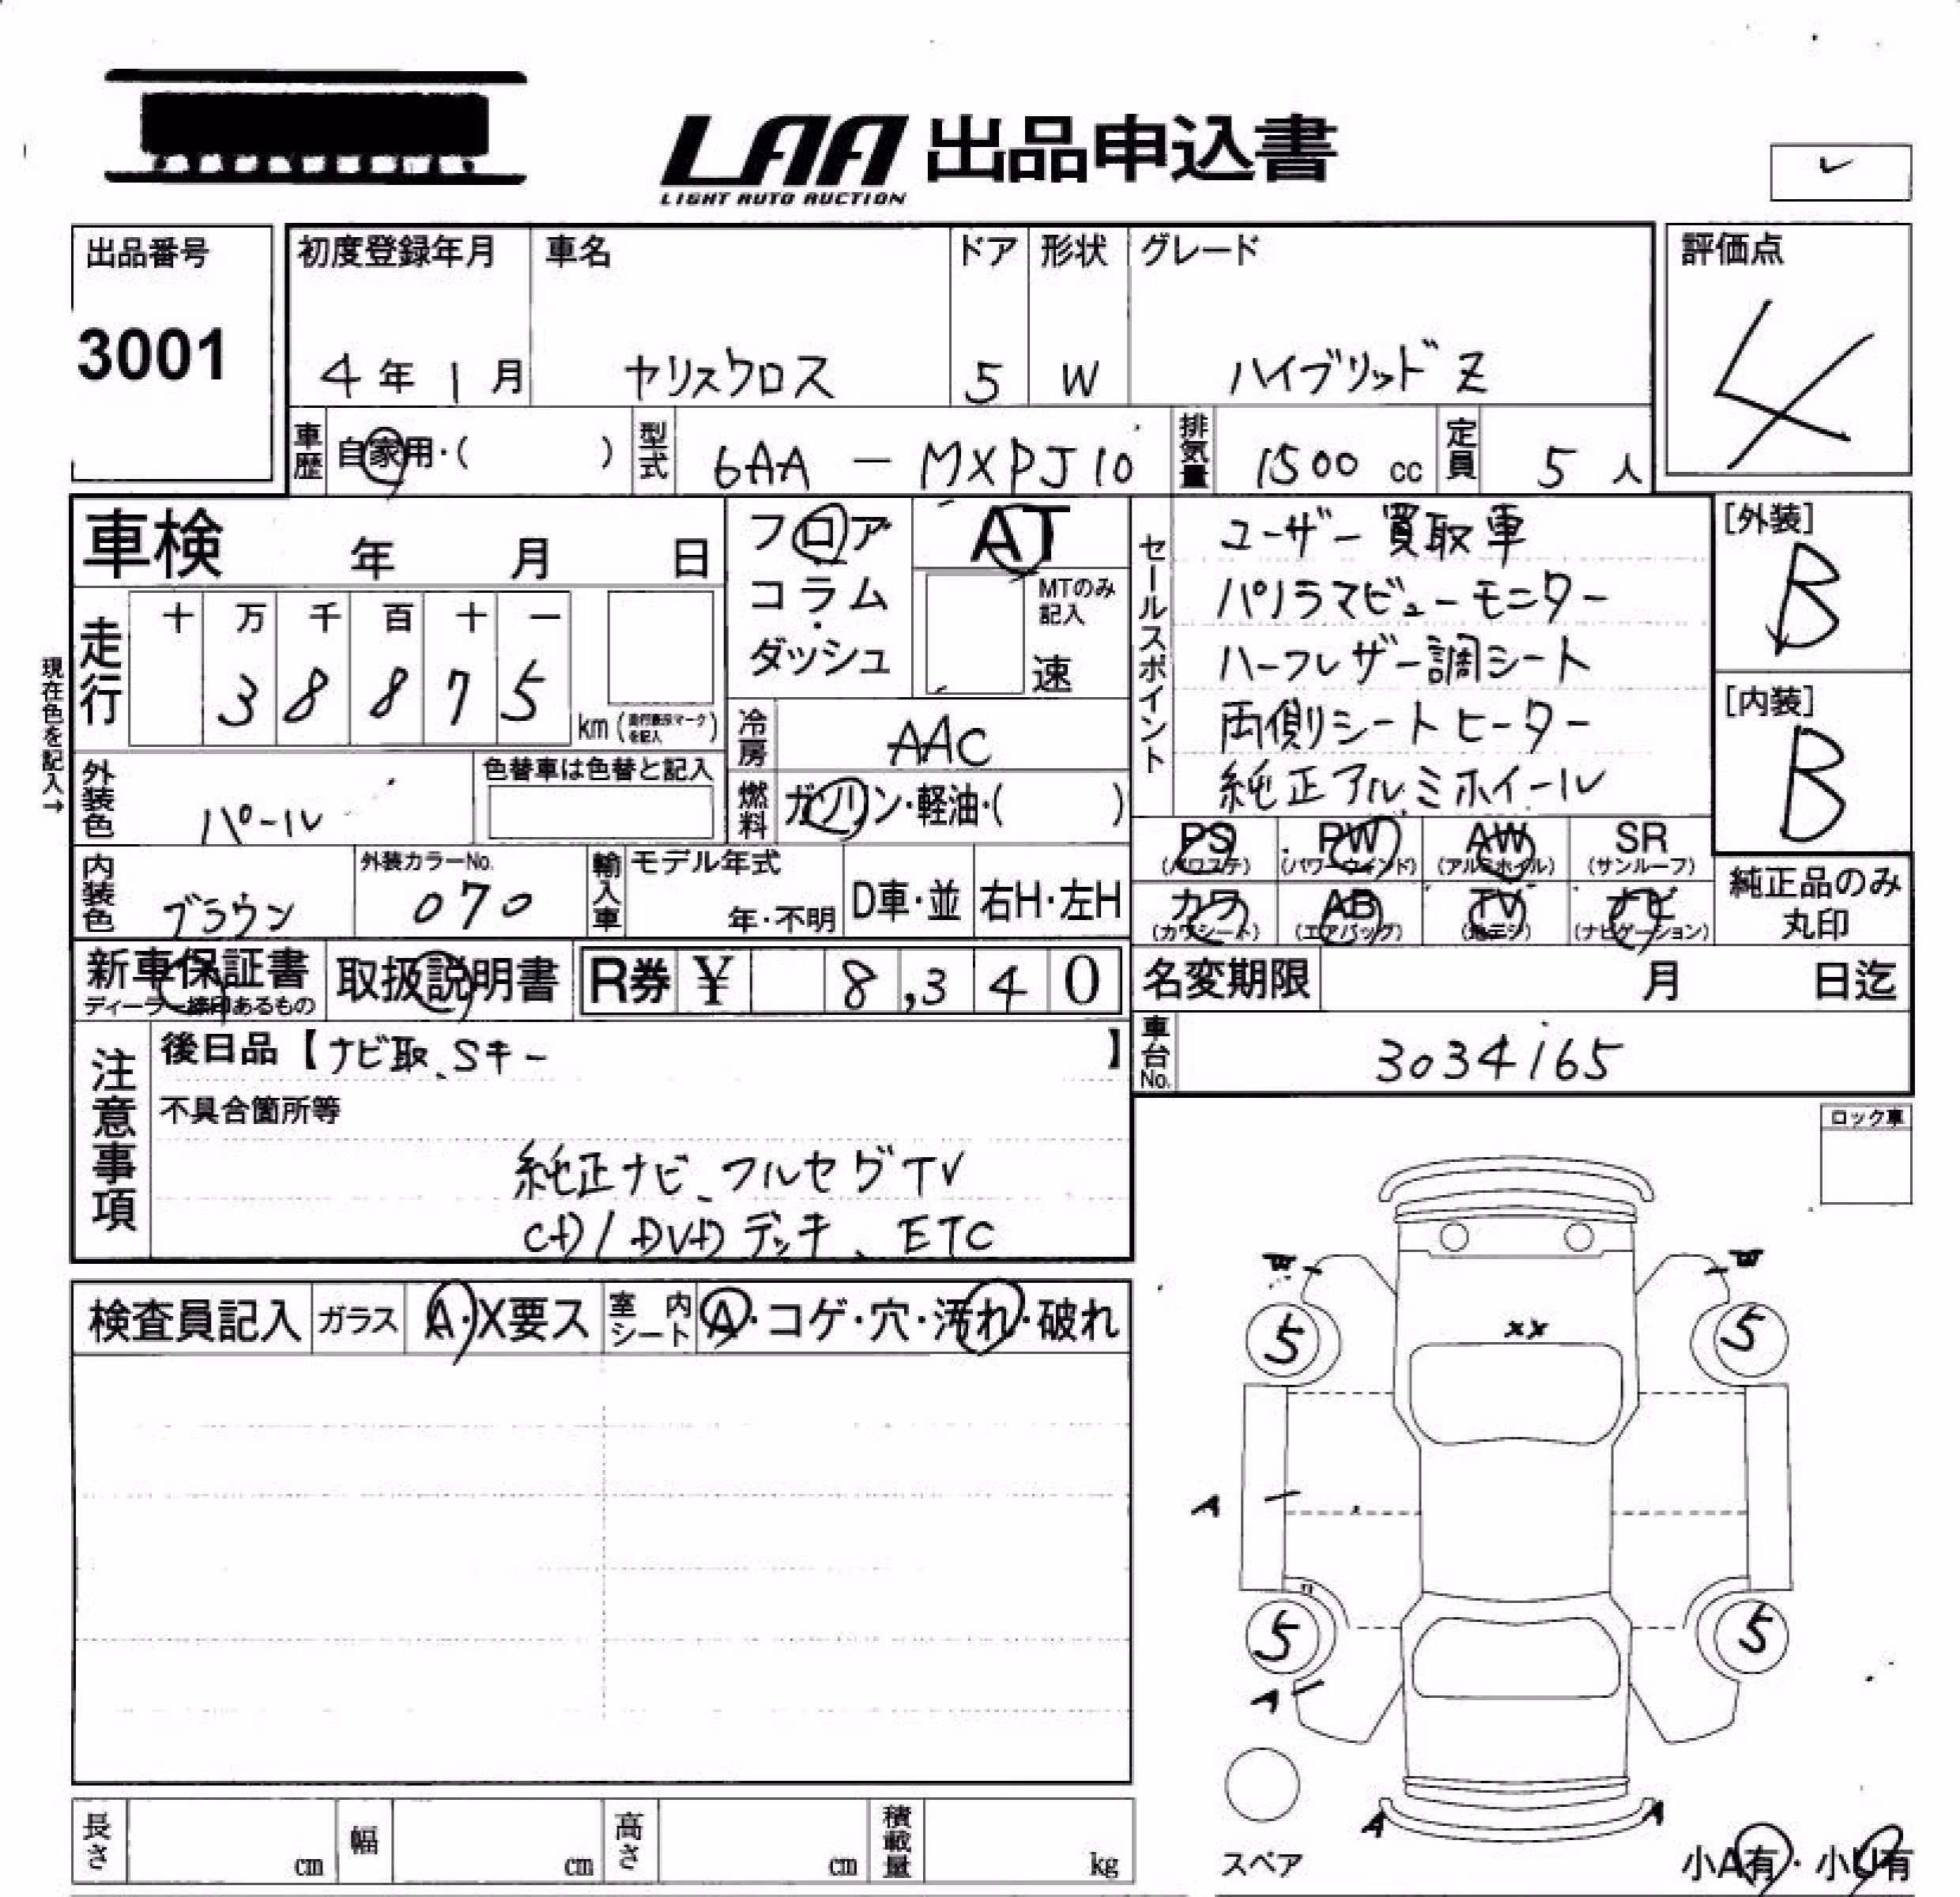 LAA 出品申込書
LIGHT AUTO AUCTION
出品番号
3001
初度登録年月 車名 ドア 形状 グレード
4年 1月 ヤリスクロス 5 W ハイブリッド Z
評価点
4
車歴 自家用・( ) 型式 6AA － MXPJ10 排気量 1500 cc 定員 5 人
車検 年 月 日
フロア
コラム
ダッシュ
AT
MTのみ記入
速
走行 十 万 千 百 十 一
3 8 8 7 5 km (走行表示マークを記入)
現在色を記入→
冷房 AAC
燃料 ガソリン・軽油・( )
外装色 パール
色替車は色替と記入
内装色 ブラウン
外装カラーNo.
070
輸入車 モデル年式
年・不明 D車・並 右H・左H
セールスポイント
ユーザー買取車
パノラマビューモニター
ハーフレザー調シート
両側シートヒーター
純正アルミホイール
[外装]
B
[内装]
B
PS PW AW SR
(パワステ) (パワーウィンド) (アルミホイル) (サンルーフ)
カワ AB TV ナビ
(カワシート) (エアバッグ) (地デジ) (ナビゲーション)
純正品のみ
丸印
新車保証書 取扱説明書 R券 ¥ 8,340
ディーラー捺印あるもの
名変期限 月 日迄
車台No. 3034165
注意事項
後日品【ナビ取、Sキー 】
不具合箇所等
純正ナビ、フルセグTV
CD/DVDデッキ、ETC
ロック車
検査員記入 ガラス A・X要ス 室内シート A・コゲ・穴・汚れ・破れ
W W
5 XX 5
A
5 5
A
A A
スペア
小A有・小U有
長さ cm 幅 cm 高さ cm 積載量 kg